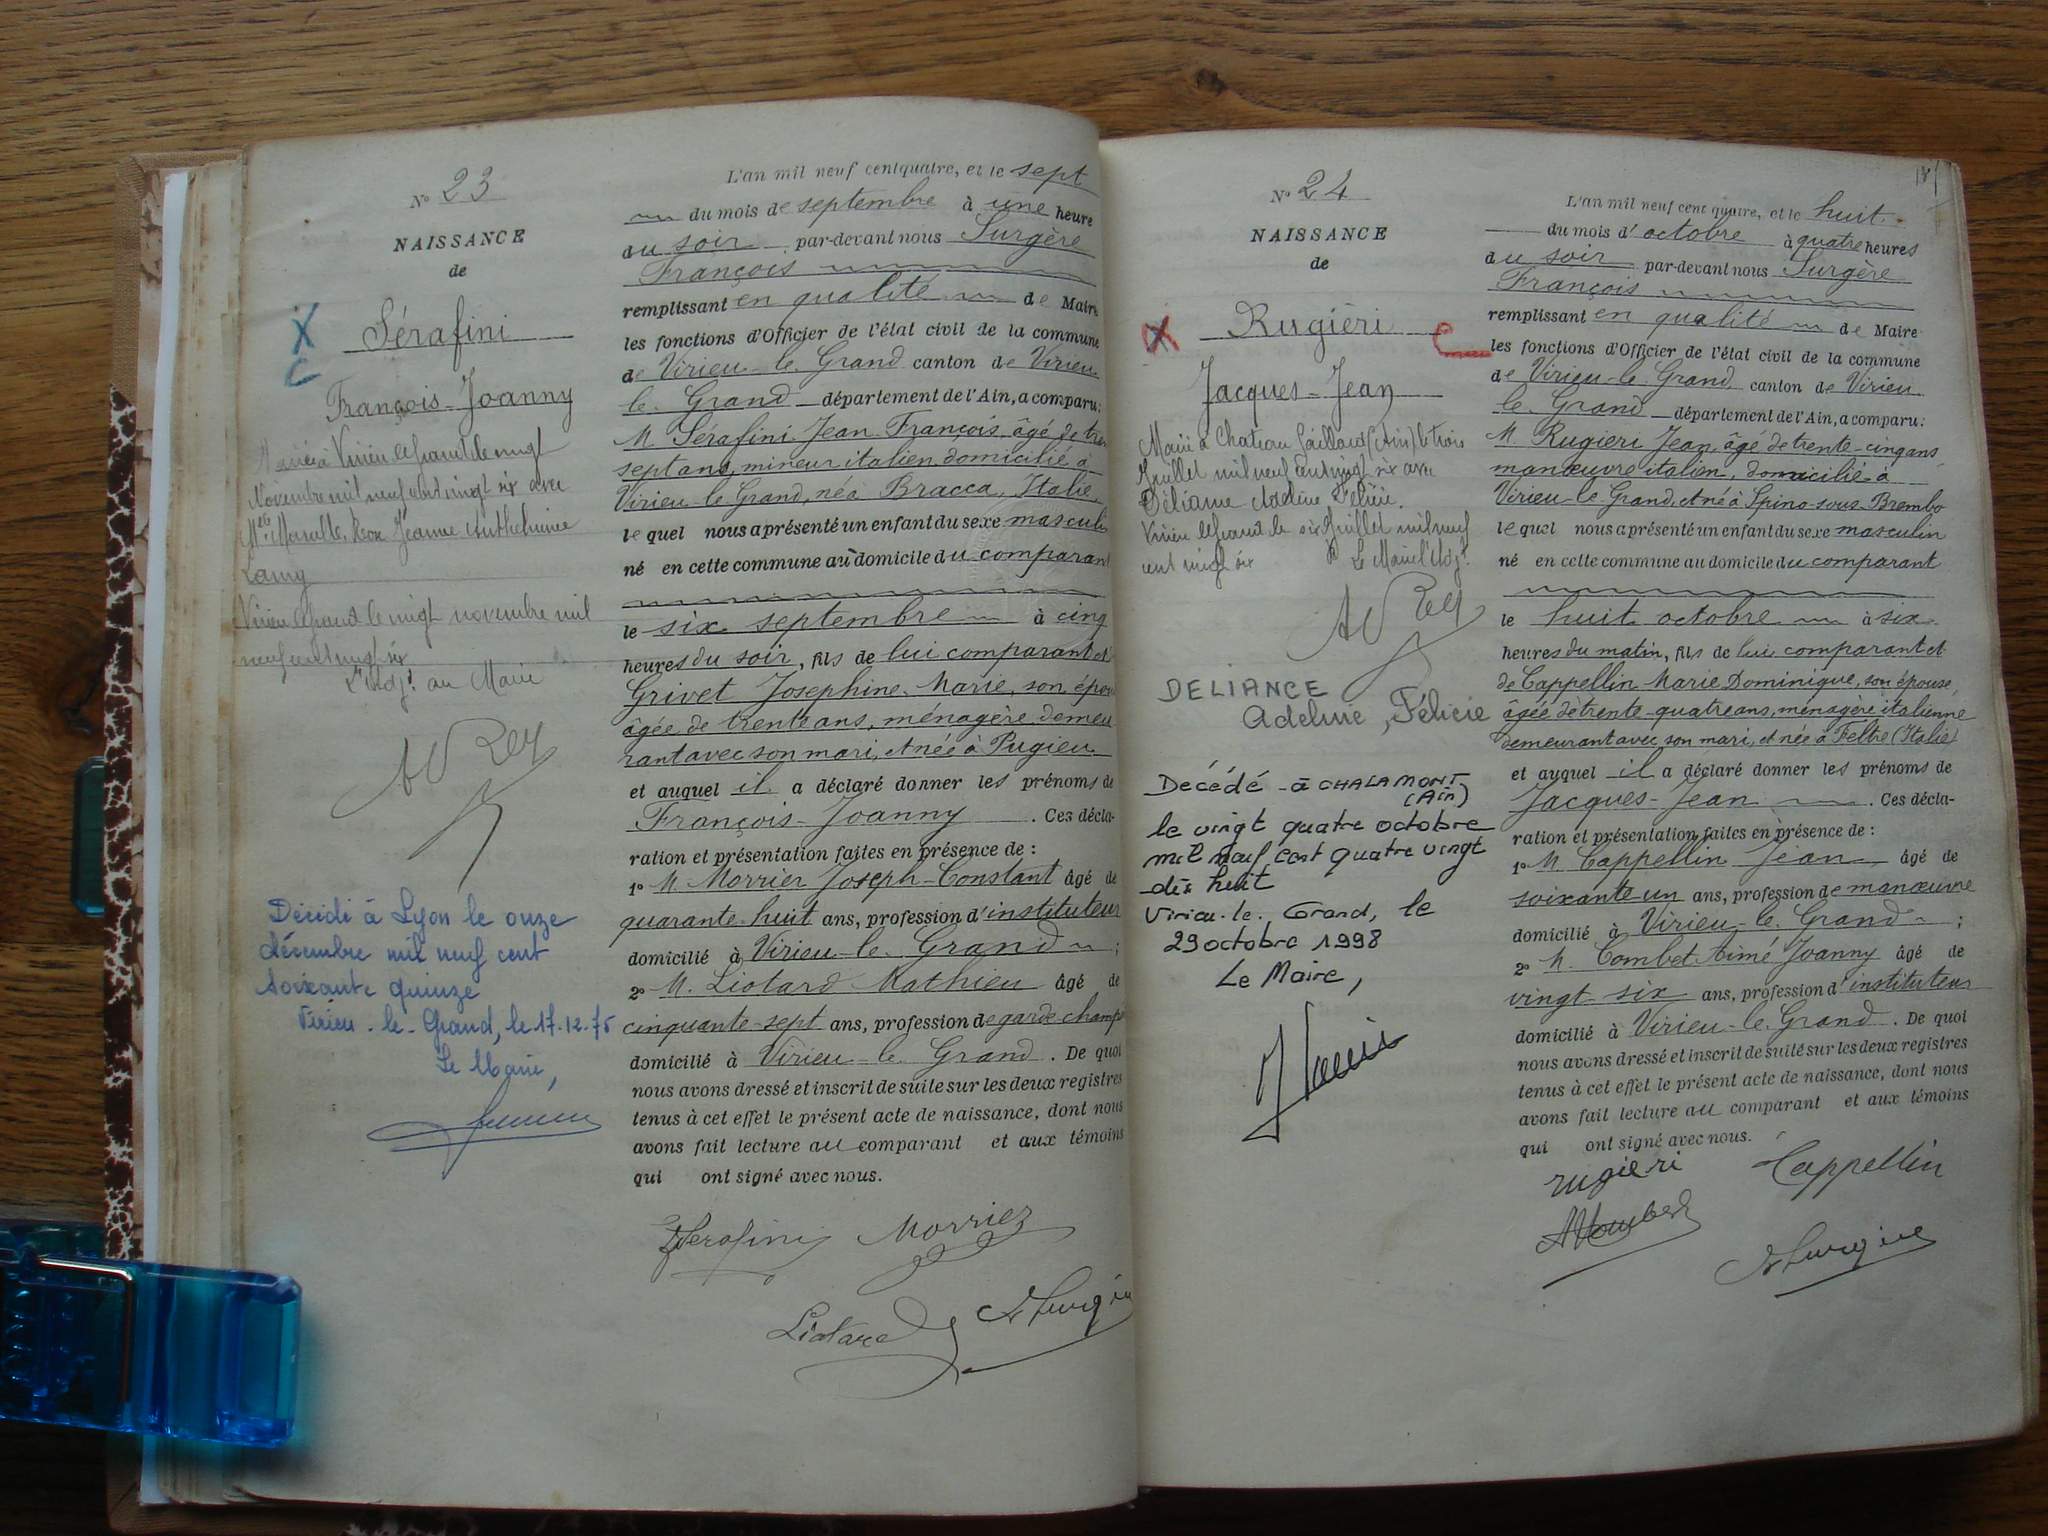 N° 23
NAISSANCE
de
Sérafini
François-Joanny
Marié à Virieu le Grand le vingt
Novembre mil neuf cent vingt six avec
Jeanne Anthelmine
Lamy
Virieu le Grand le vingt novembre mil
neuf cent vingt six
L'adjt au Maire
A Rey
Décédé à Lyon le onze
décembre mil neuf cent
soixante quinze
Virieu-le-Grand, le 17.12.75
Le Maire,
L'an mil neuf cent quatre, et le sept
du mois de septembre à une heure
du soir par-devant nous Surgère
François
remplissant en qualité de Maire
les fonctions d'Officier de l'état civil de la commune
de Virieu-le-Grand canton de Virieu
le-Grand département de l'Ain, a comparu:
M. Sérafini Jean François, âgé de tren
sept ans, mineur italien domicilié à
Virieu-le-Grand, né à Bracca, Italie,
lequel nous a présenté un enfant du sexe masculi
né en cette commune au domicile du comparant
le six septembre à cinq
heures du soir, fils de lui comparant et
Grivet Josephine Marie, son épou
âgée de trente ans, ménagère demeu
rant avec son mari, et née à Pugieu
et auquel il a déclaré donner les prénoms de
François-Joanny. Ces décla-
ration et présentation faites en présence de :
1° M. Morrier Joseph-Constant âgé de
quarante-huit ans, profession d'instituteur
domicilié à Virieu-le-Grand ;
2° M. Liotard Mathieu âgé de
cinquante-sept ans, profession de garde champê
domicilié à Virieu-le-Grand. De quoi
nous avons dressé et inscrit de suite sur les deux registres
tenus à cet effet le présent acte de naissance, dont nous
avons fait lecture au comparant et aux témoins
qui ont signé avec nous.
Serafini Morrier
Liotard Surgère
N° 24
NAISSANCE
de
Rugieri
Jacques-Jean
Marié à Chateau Gaillard (Ain) le trois
Juillet mil neuf cent vingt six avec
Déliance Adeline Félicie.
Virieu le Grand le six Juillet mil neuf
cent vingt six Le Maire l'Adjt
A Rey
DELIANCE
Adeline, Félicie
Décédé à CHALAMONT
(Ain)
le vingt quatre octobre
mil neuf cent quatre vingt
dix huit
Virieu-le-Grand, le
29 octobre 1998
Le Maire,
L'an mil neuf cent quatre, et le huit
du mois d'octobre à quatre heures
du soir par-devant nous Surgère
François
remplissant en qualité de Maire
les fonctions d'Officier de l'état civil de la commune
de Virieu-le-Grand canton de Virieu
le-Grand département de l'Ain, a comparu:
M. Rugieri Jean, âgé de trente-cinq ans
manœuvre italien, domicilié à
Virieu-le-Grand, et né à Spino-sous-Brembo
lequel nous a présenté un enfant du sexe masculin
né en cette commune au domicile du comparant
le huit octobre à six
heures du matin, fils de lui comparant et
de Cappellin Marie Dominique, son épouse,
âgée de trente-quatre ans, ménagère italienne
demeurant avec son mari, et née à Feltre (Italie)
et auquel il a déclaré donner les prénoms de
Jacques-Jean. Ces décla-
ration et présentation faites en présence de :
1° M. Cappellin Jean âgé de
soixante-un ans, profession de manœuvre
domicilié à Virieu-le-Grand ;
2° M. Combet Aimé Joanny âgé de
vingt-six ans, profession d'instituteur
domicilié à Virieu-le-Grand. De quoi
nous avons dressé et inscrit de suite sur les deux registres
tenus à cet effet le présent acte de naissance, dont nous
avons fait lecture au comparant et aux témoins
qui ont signé avec nous.
rugieri Cappellin
ACombet Surgère